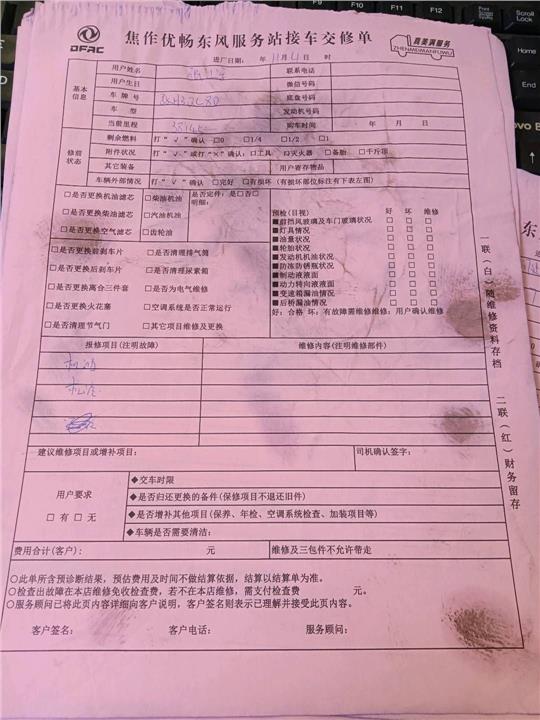 DFAC
焦作优畅东风服务站接车交修单
真美满服务
ZHENMEIMANFUWU
进厂日期: 年 11月 日 时
基本信息
用户姓名 联系电话
用户生日 微信号码
车牌号 底盘号码
车型 发动机号码
当前里程 购车时间 年 月 日
修前状态
剩余燃料 打“√”确认 □0 □1/4 □1/2 □1
附件状况 打“√”或打“×”确认:□工具 □灭火器 □备胎 □千斤顶
其它装备 用户寄存物品
车辆外部情况 打“√”确认 □完好 □有损坏 (有损坏部位标注有下表左图)
□是否更换机油滤芯 □柴油机油 是否定件:是□否□
明细:
□是否更换柴油滤芯 □汽油机油
□是否更换空气滤芯 □齿轮油
□是否更换前刹车片 □是否清理排气筒
□是否更换后刹车片 □是否清理尿素箱
□是否更换离合三件套 □是否为电气维修
□是否更换火花塞 □空调系统是否正常运行
□是否清理节气门 □其它项目维修及更换
预检(目视) 好 坏 维修
■前挡风玻璃及车门玻璃状况 □ □ □
■灯具情况 □ □ □
■油量状况 □ □ □
■轮胎状况 □ □ □
■发动机机油状况 □ □ □
■防冻防锈瓶状况 □ □ □
■制动液液面 □ □ □
■动力转向液液面 □ □ □
■变速箱漏油情况 □ □ □
■后桥漏油情况 □ □ □
好:合格 坏:有故障需维修维修:用户确认维修
报修项目(注明故障) 维修内容(注明维修部件)
机油
机滤
建议维修项目或增补项目: 司机确认签字:
用户要求
□有 □无
◆交车时限
◆是否归还更换的备件(保修项目不退还旧件)
◆是否增补其他项目(保养、年检、空调系统检查、加装项目等)
◆车辆是否需要清洁:
费用合计(客户): 元 维修及三包件不允许带走
○此单所含预诊断结果,预估费用及时间不做结算依据,结算以结算单为准。
○检查出故障在本店维修免收检查费,若不在本店维修,需支付检查费 元。
○服务顾问已将此页内容详细向客户说明,客户签名则表示已理解并接受此页内容。
客户签名: 客户电话: 服务顾问:
一联(白)随维修资料存档
二联(红)财务留存
PrtSc
SysRq
Scroll
Lock
Home
End